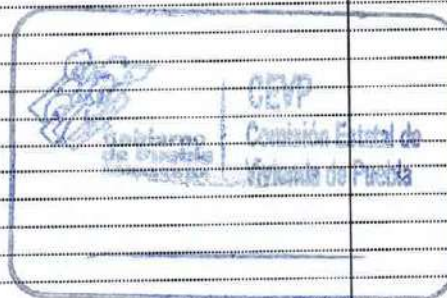 Gobierno
de Puebla
CEVP
Comisión Estatal de
Vivienda de Puebla